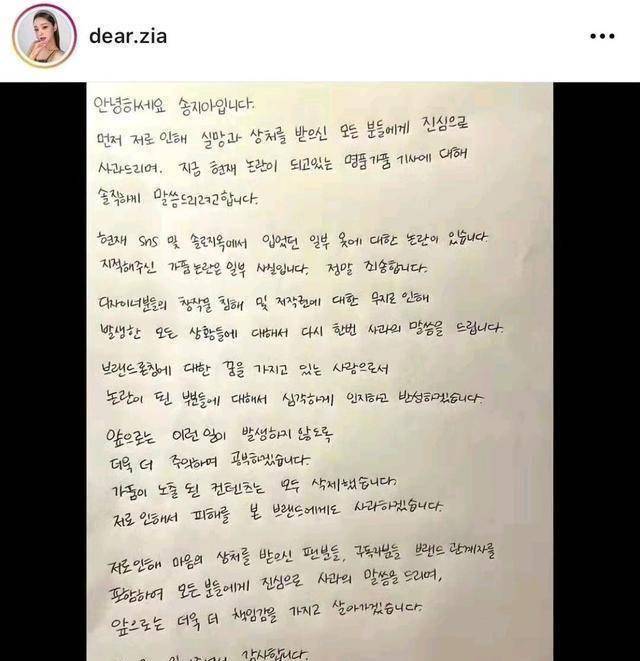 dear.zia
안녕하세요 송지아입니다.
먼저 저로 인해 실망과 상처를 받으신 모든 분들에게 진심으로
사과드리며. 지금 현재 논란이 되고있는 명품가품 기사에 대해
솔직하게 말씀드리려고합니다.
현재 SNS 및 솔로지옥에서 입었던 일부 옷에 대한 논란이 있습니다.
지적해주신 가품논란은 일부 사실입니다. 정말 죄송합니다.
디자이너분들의 창작물 침해 및 저작권에 대한 무지로 인해
발생한 모든 상황들에 대해서 다시 한번 사과의 말씀을 드립니다.
브랜드론칭에 대한 꿈을 가지고 있는 사람으로서
논란이 된 부분들에 대해서 심각하게 인지하고 반성하겠습니다.
앞으로는 이런 일이 발생하지 않도록
더욱 더 주의하며 공부하겠습니다.
가품이 노출 된 컨텐츠는 모두 삭제했습니다.
저로 인해서 피해를 본 브랜드에게도 사과하겠습니다.
저로인해 마음의 상처를 받으신 팬분들, 구독자분들 브랜드 관계자를
포함하여 모든 분들에게 진심으로 사과의 말씀을 드리며,
앞으로는 더욱 더 책임감을 가지고 살아가겠습니다.
감사합니다.